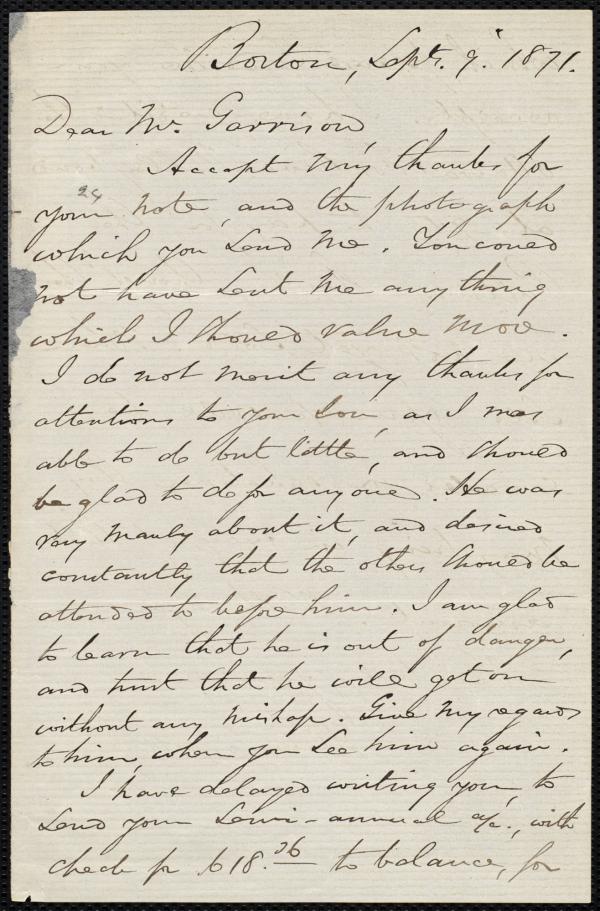 Boston, Sept. 9. 1871.
Dear Mr. Garrison,
Accept my thanks for
24
your note, and the photograph
which you send me. You could
not have sent me anything
which I should value more.
I do not merit any thanks for
attentions to your son, as I was
able to do but little, and should
be glad to do for any one. He was
very manly about it, and desired
constantly that the others should be
attended to before him. I am glad
to learn that he is out of danger,
and trust that he will get on
without any mishap. Give my regards
to him, when you see him again.
I have delayed writing you, to
send your semi-annual a/c., with
check for 618.36 to balance, for